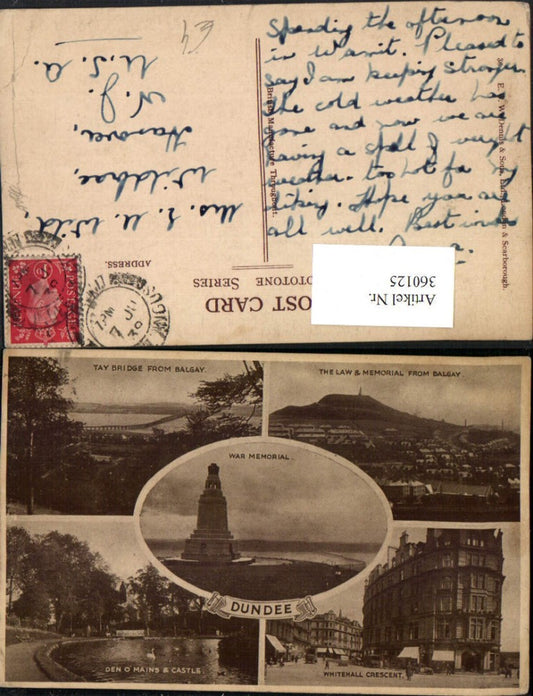 Spending the afternoon
in W. Pleased to
say I am keeping stronger.
The cold weather has
gone and now we are
having a spell of bright
weather - too hot for my
liking. Hope you are
all well. Best wishes
Mrs. L. U. Wild,
Wildbrae,
Hanover,
N. J.
U. S. A.
ADDRESS.
POST CARD
PHOTOTONE SERIES
British Manufacture Throughout.
E. T. W. Dennis & Sons, London & Scarborough.
Artikel Nr.
360125
TAY BRIDGE FROM BALGAY.
THE LAW & MEMORIAL FROM BALGAY.
WAR MEMORIAL.
DUNDEE
DEN O' MAINS & CASTLE.
WHITEHALL CRESCENT.